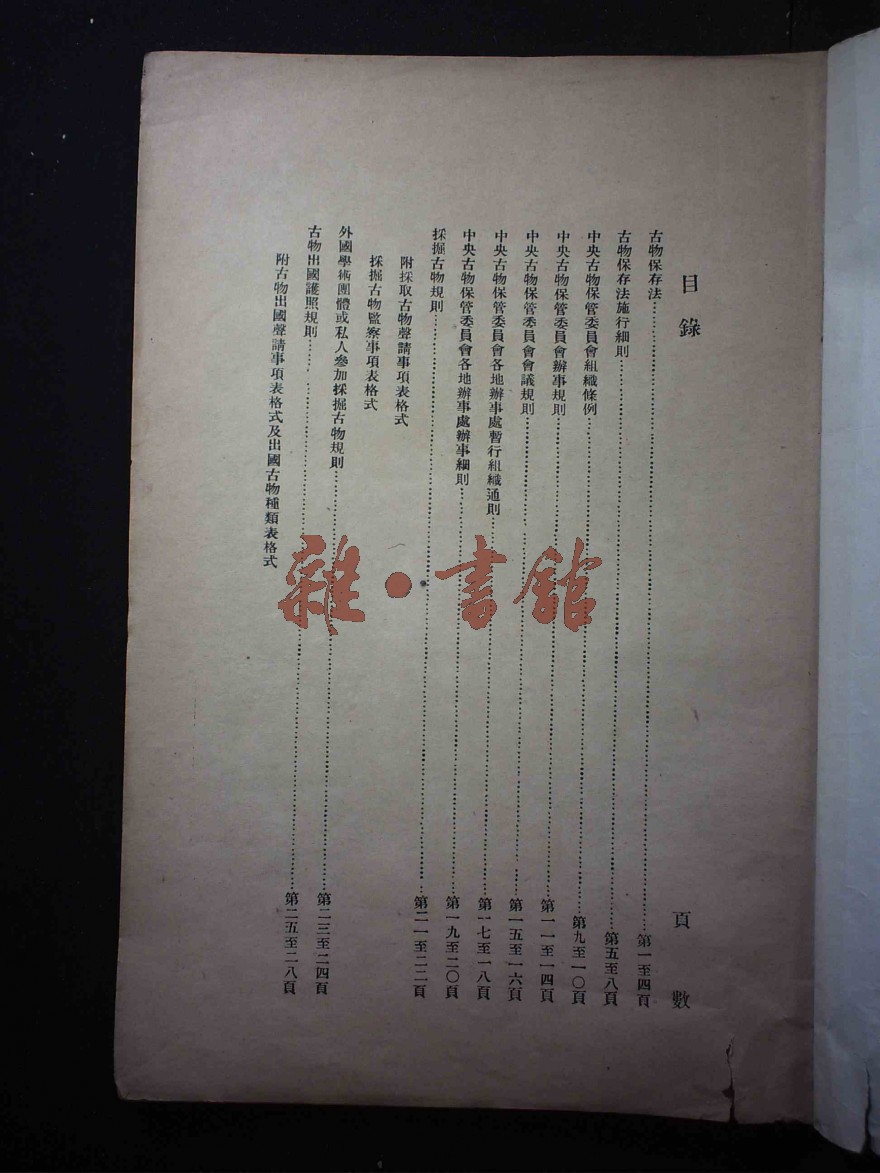 目錄 頁數
古物保存法……第一至四頁
古物保存法施行細則……第五至八頁
中央古物保管委員會組織條例……第九至一〇頁
中央古物保管委員會辦事規則……第一一至一四頁
中央古物保管委員會會議規則……第一五至一六頁
中央古物保管委員會各地辦事處暫行組織通則……第一七至一八頁
中央古物保管委員會各地辦事處辦事細則……第一九至二〇頁
採掘古物規則……第二一至二二頁
附採取古物聲請事項表格式
採掘古物監察事項表格式
外國學術團體或私人參加採掘古物規則……第二三至二四頁
古物出國護照規則……第二五至二八頁
附古物出國聲請事項表格式及出國古物種類表格式
雜·書館